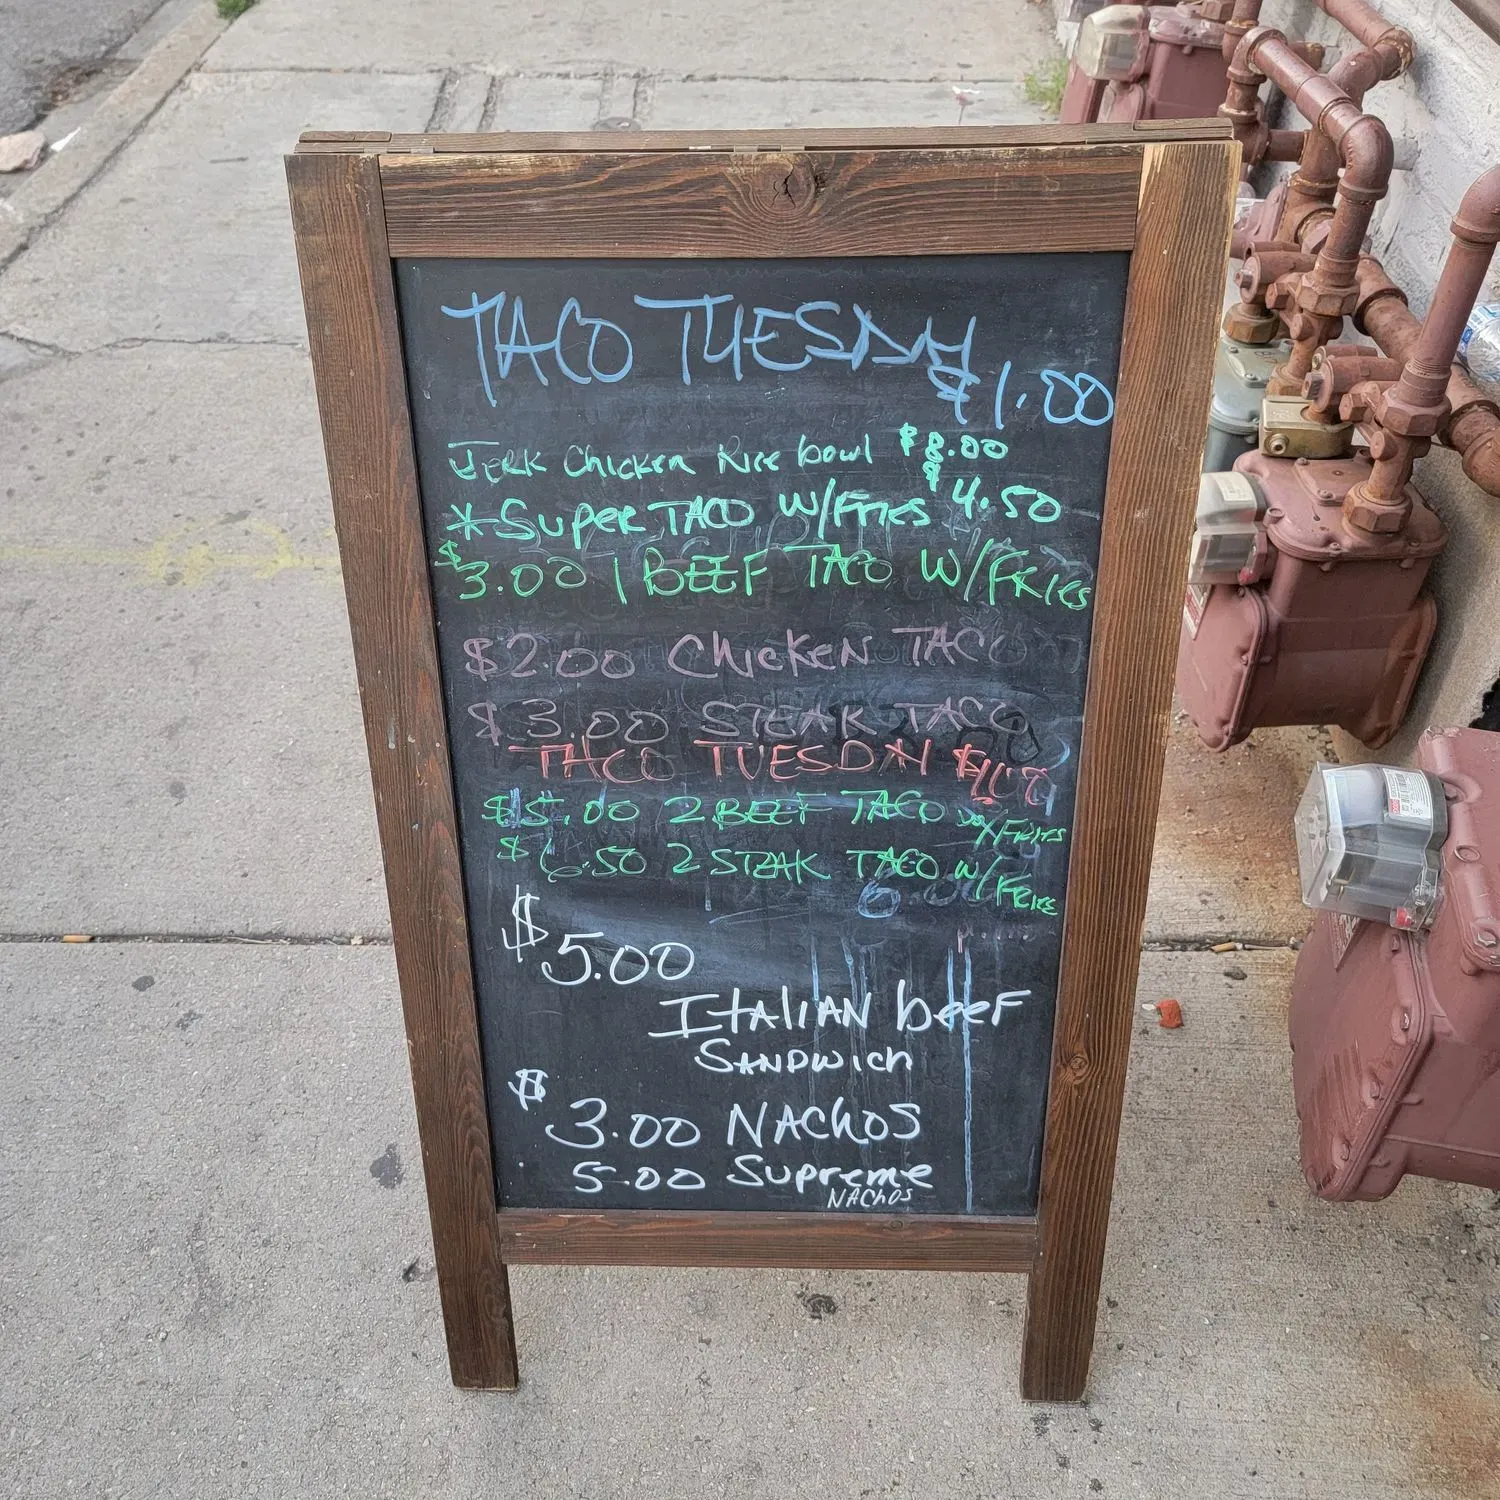 TACO TUESDAY
$1.00
JERK ChickEN Rice bowl $8.00
* SuPER TACO W/FRIES $4.50
$3.00 1 BEEF TACO W/FRIES
$2.00 ChicKEN TACO
$3.00 STEAK TACO
TACO TUESDAY $1.00
$5.00 2 BEEF TACO W/FRIES
$6.50 2 STEAK TACO W/FRIE
$5.00
ITALIAN beeF
SANDWich
$3.00 NAChOS
5.00 Supreme
NAChOS